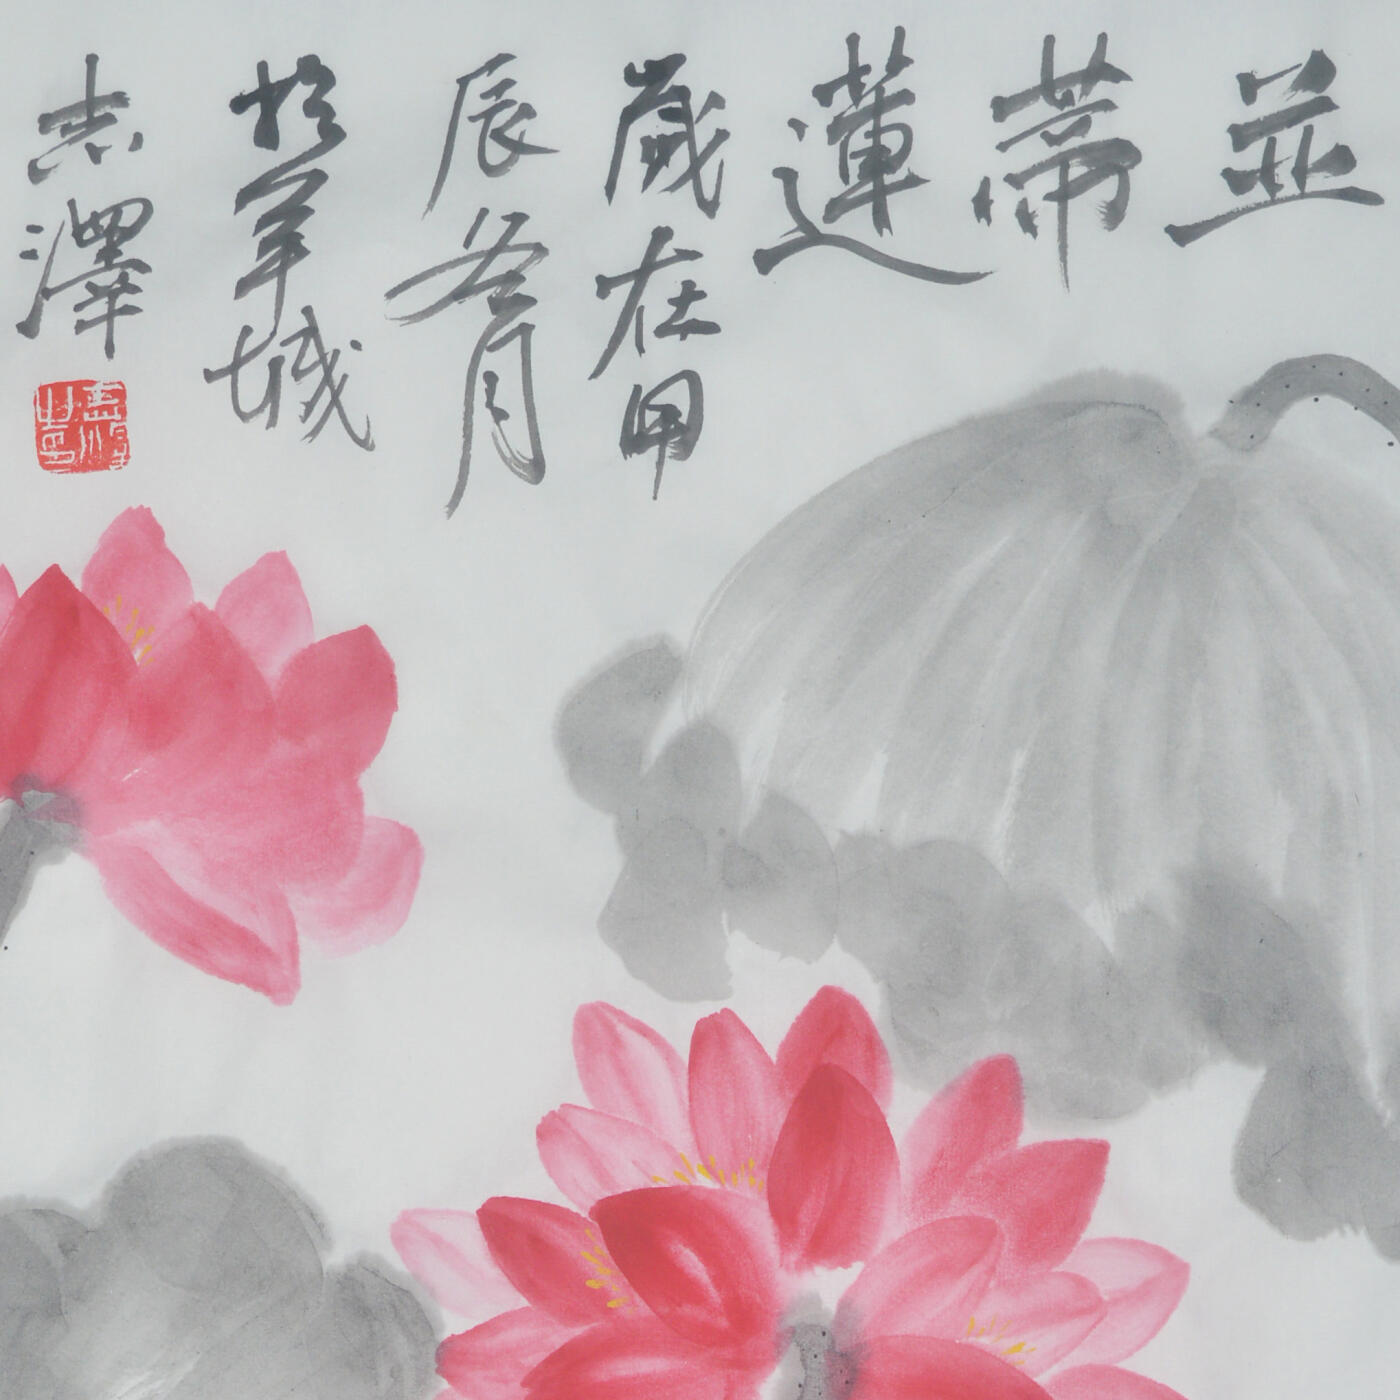 並蒂蓮
歲在甲
辰冬月
於羊城
志澤